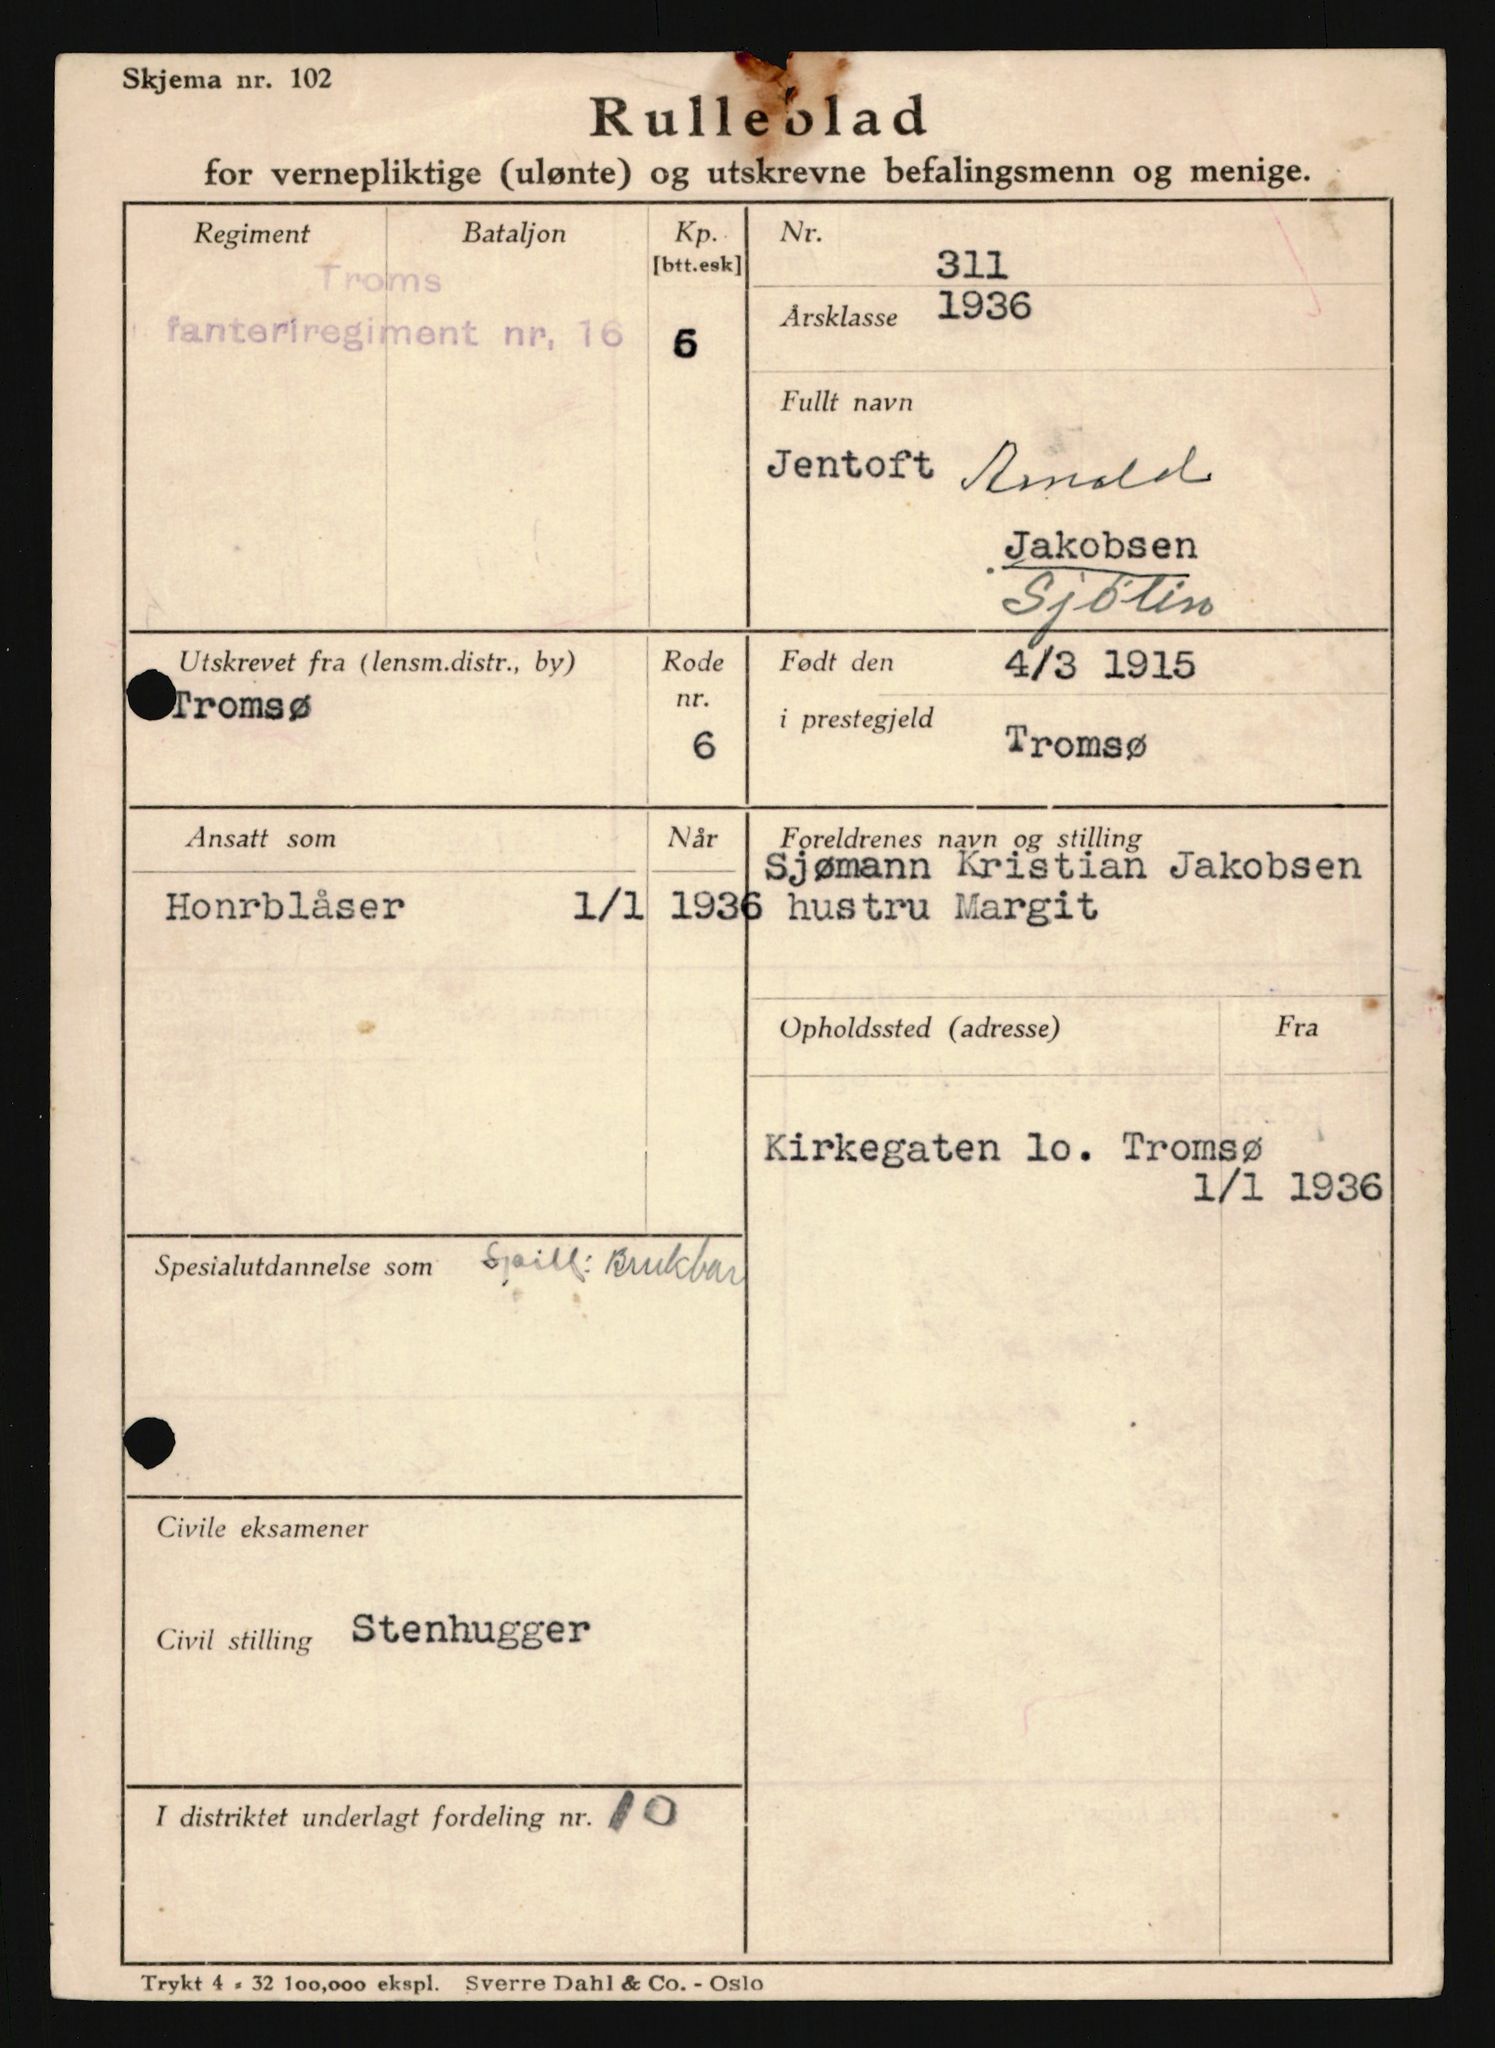 Skjema nr. 102
Rulleblad
for vernepliktige (ulønte) og utskrevne befalingsmenn og menige.
Regiment
Bataljon
Kp.
[btt.esk]
Troms
fanteriregiment nr. 16
6
Nr.
311
Årsklasse 1936
Fullt navn
Jentoft Arnold
Jakobsen
Sjötun
Utskrevet fra (lensm.distr., by)
Tromsø
Rode
nr.
6
Født den 4/3 1915
i prestegjeld Tromsø
Ansatt som
Når
Honrblåser 1/1 1936
Foreldrenes navn og stilling
Sjømann Kristian Jakobsen
hustru Margit
Opholdssted (adresse)
Fra
Kirkegaten 1o. Tromsø
1/1 1936
Spesialutdannelse som Spill: Brukbar
Civile eksamener
Civil stilling Stenhugger
I distriktet underlagt fordeling nr. 10
Trykt 4 - 32 100,000 ekspl. Sverre Dahl & Co. - Oslo